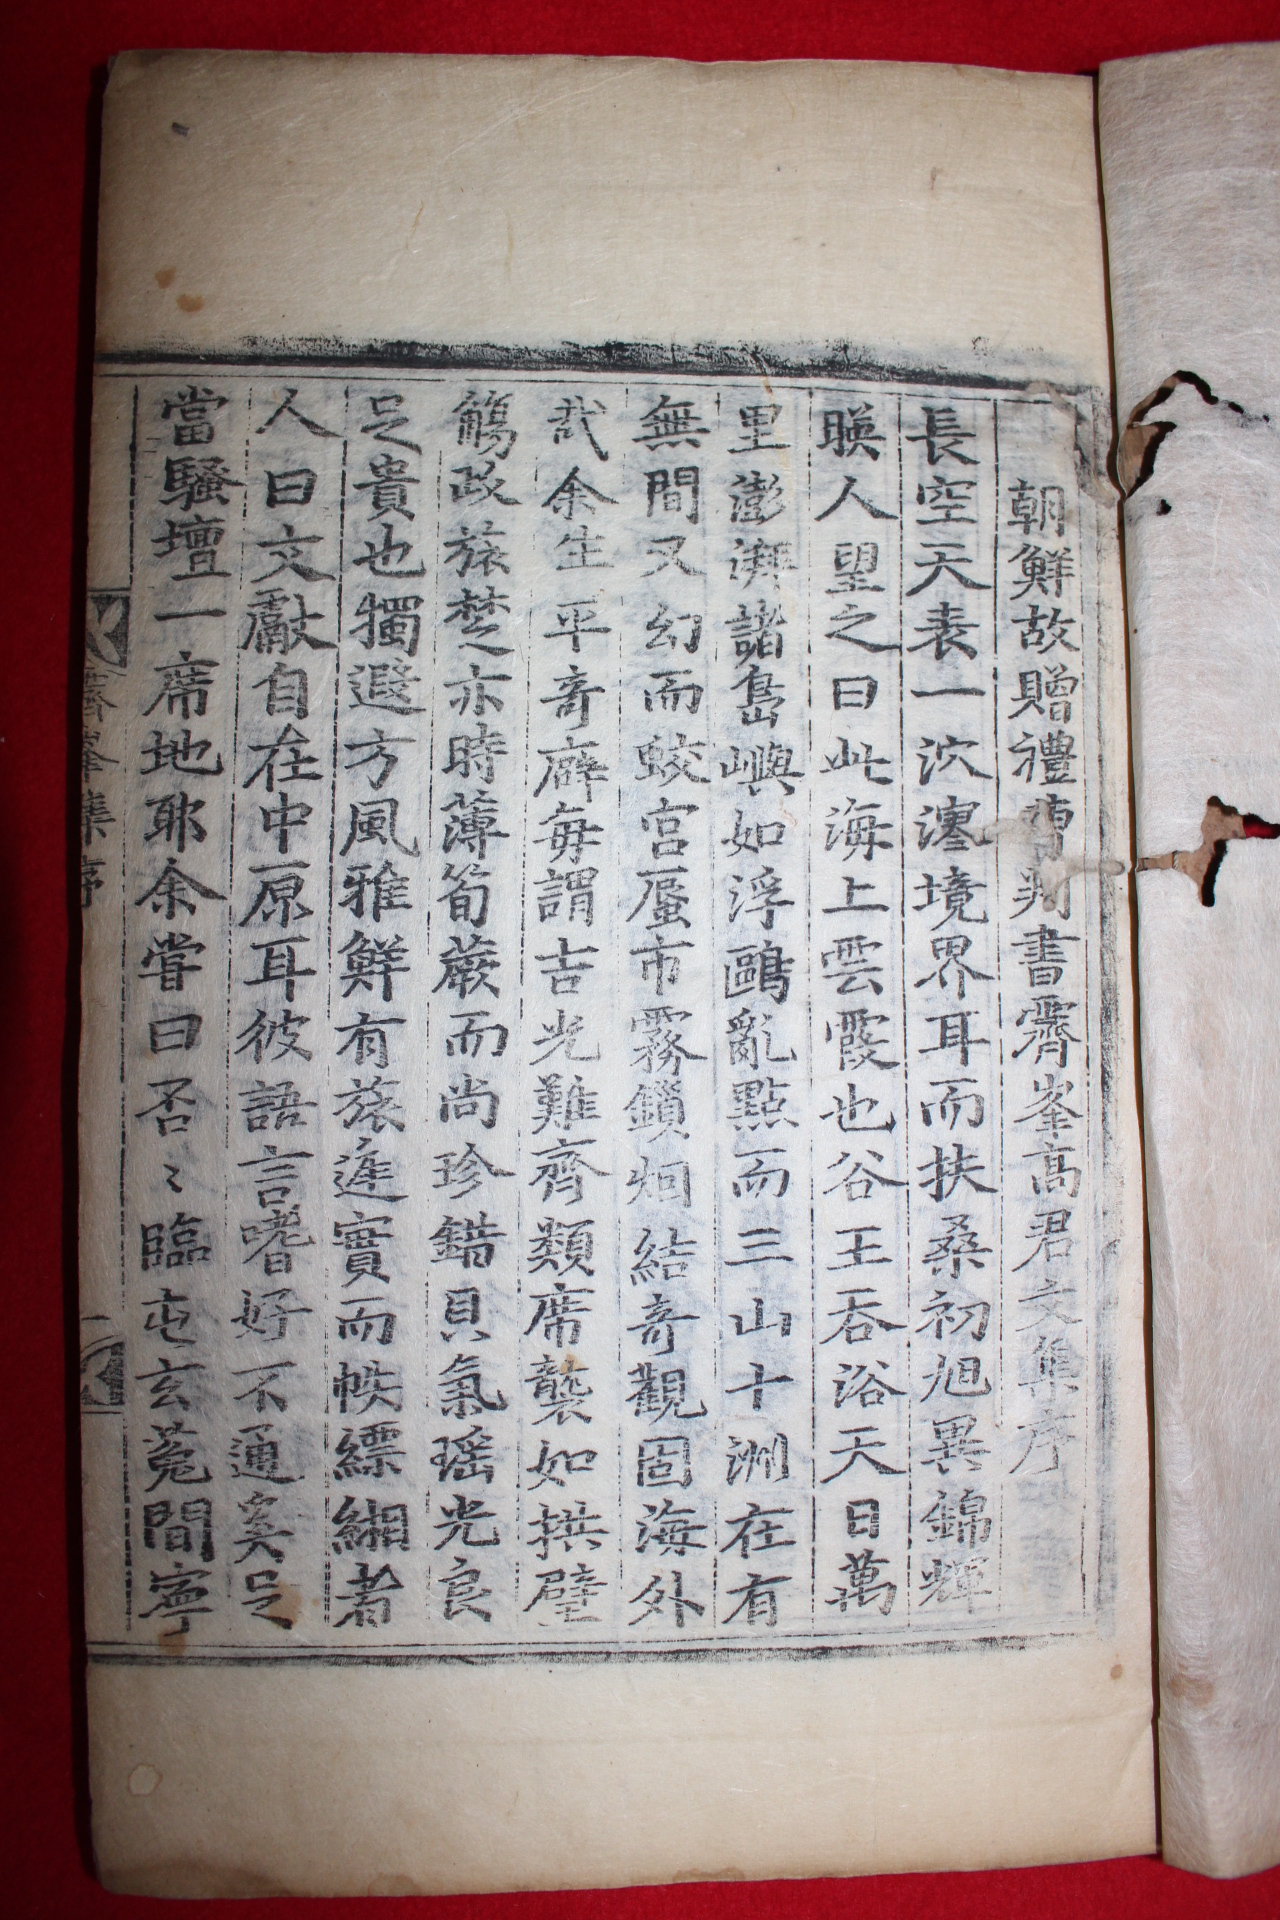 朝鮮故贈禮曹判書霽峯高君文集序
長空天表一泬㵝境界耳而扶桑初旭異錦輝
暎人望之曰此海上雲霞也谷王呑浴天日萬
里澎湃諸島嶼如浮鷗亂點而三山十洲在有
無間又幻而蛟宮蜃市霧鎖烟結奇觀固海外
哉余生平奇癖每謂吉光難齊類席襲如拱璧
觴政旅椘亦時薄筍蕨而尚珍錯具氣瑶光良
足貴也獨遐方風雅鮮有旅遑實而帙縹緗者
人曰文獻自在中原耳彼語言嗜好不通奚足
當騷壇一席地耶余嘗曰否〻臨屯玄菟間寧
霽峯集序